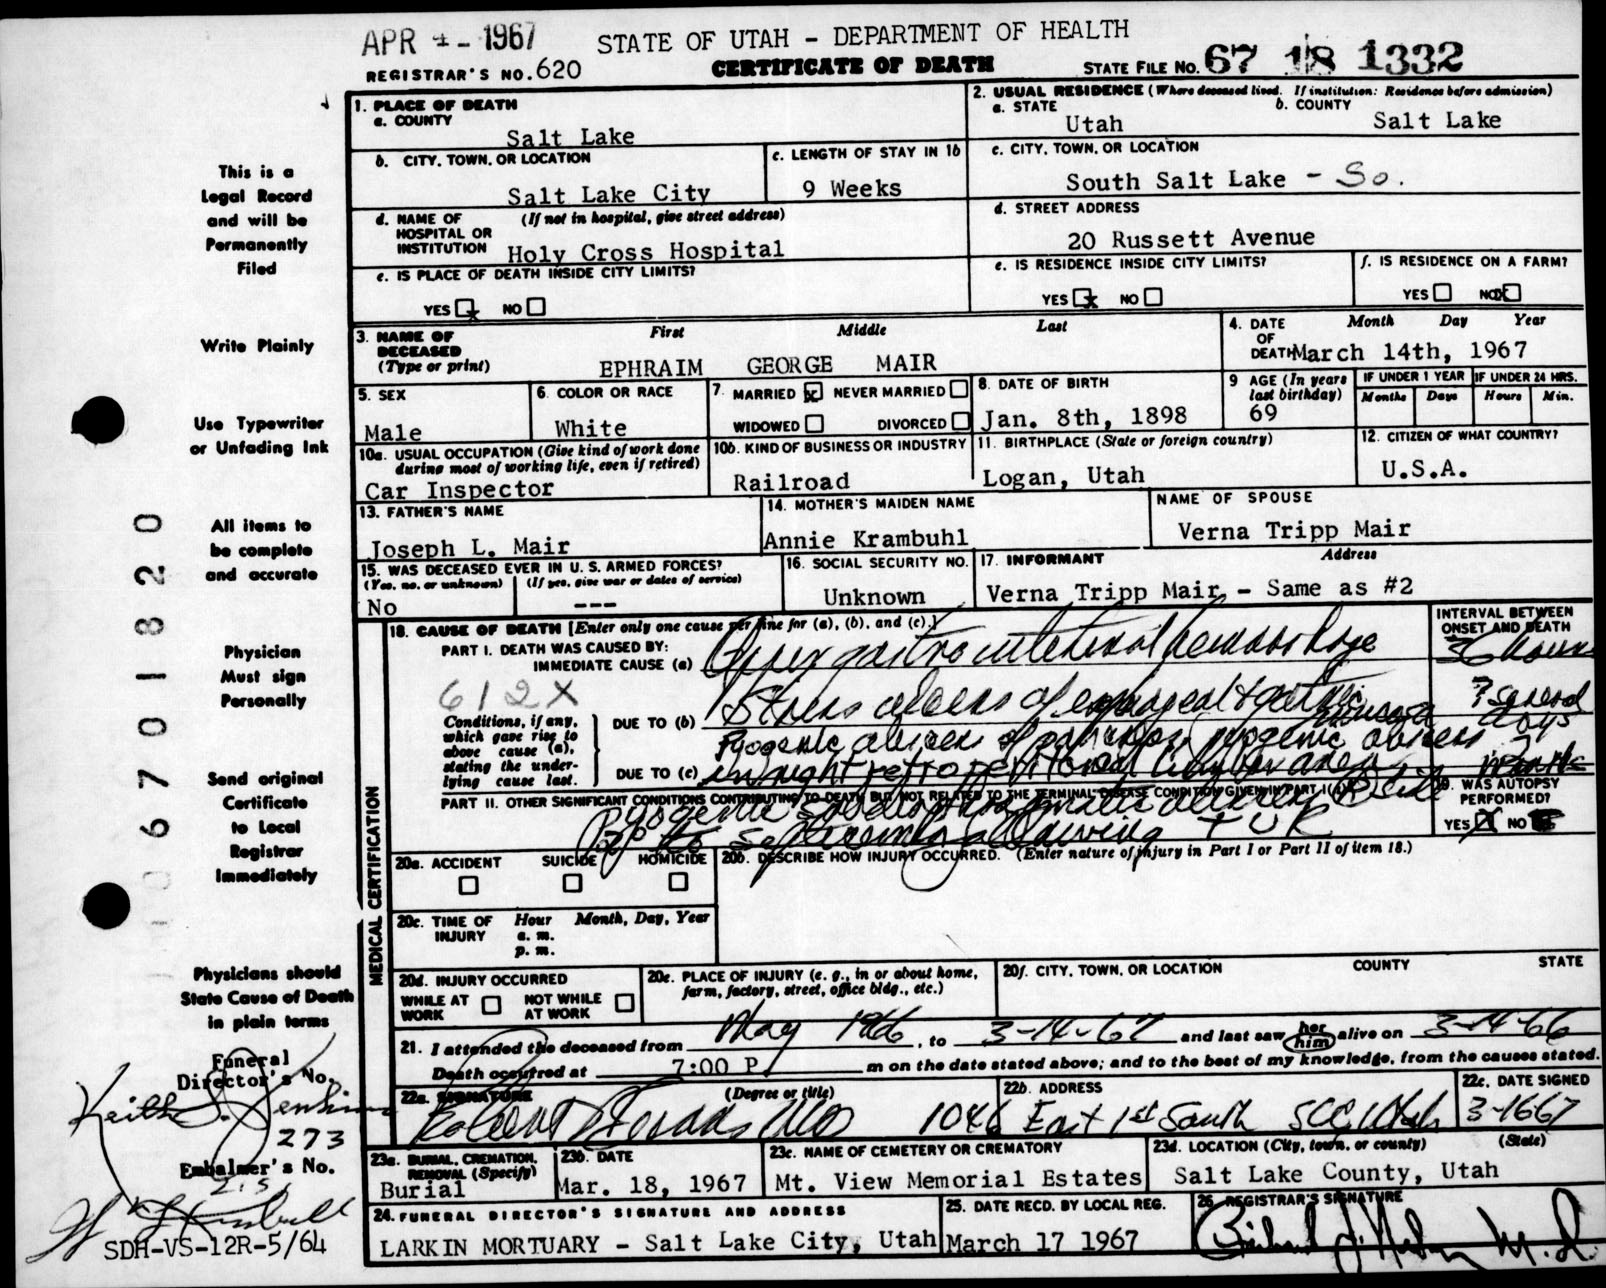 APR 4 - 1967
STATE OF UTAH - DEPARTMENT OF HEALTH
REGISTRAR'S NO. 620
CERTIFICATE OF DEATH
STATE FILE NO. 67 18 1332
This is a
Legal Record
and will be
Permanently
Filed
Write Plainly
Use Typewriter
or Unfading Ink
All items to
be complete
and accurate
Physician
Must sign
Personally
Send original
Certificate
to Local
Registrar
Immediately
Physicians should
State Cause of Death
in plain terms
Funeral
Director's No.
273
Embalmer's No.
SDH-VS-12R-5/64
0 6 7 0 1 8 2 0
1. PLACE OF DEATH
a. COUNTY
Salt Lake
2. USUAL RESIDENCE (Where deceased lived. If institution: Residence before admission)
a. STATE
Utah
b. COUNTY
Salt Lake
b. CITY, TOWN, OR LOCATION
Salt Lake City
c. LENGTH OF STAY IN 1b
9 Weeks
c. CITY, TOWN, OR LOCATION
South Salt Lake - So.
d. NAME OF HOSPITAL OR INSTITUTION
(If not in hospital, give street address)
Holy Cross Hospital
d. STREET ADDRESS
20 Russett Avenue
e. IS PLACE OF DEATH INSIDE CITY LIMITS?
YES x NO
e. IS RESIDENCE INSIDE CITY LIMITS?
YES x NO
f. IS RESIDENCE ON A FARM?
YES NO x
3. NAME OF DECEASED (Type or print)
First Middle Last
EPHRAIM GEORGE MAIR
4. DATE OF DEATH
Month Day Year
March 14th, 1967
5. SEX
Male
6. COLOR OR RACE
White
7. MARRIED x NEVER MARRIED
WIDOWED DIVORCED
8. DATE OF BIRTH
Jan. 8th, 1898
9 AGE (In years last birthday)
69
IF UNDER 1 YEAR
Months Days
IF UNDER 24 HRS.
Hours Min.
10a. USUAL OCCUPATION (Give kind of work done during most of working life, even if retired)
Car Inspector
10b. KIND OF BUSINESS OR INDUSTRY
Railroad
11. BIRTHPLACE (State or foreign country)
Logan, Utah
12. CITIZEN OF WHAT COUNTRY?
U.S.A.
13. FATHER'S NAME
Joseph L. Mair
14. MOTHER'S MAIDEN NAME
Annie Krambuhl
NAME OF SPOUSE
Verna Tripp Mair
15. WAS DECEASED EVER IN U.S. ARMED FORCES?
(Yes, no, or unknown) (If yes, give war or dates of service)
No ---
16. SOCIAL SECURITY NO.
Unknown
17. INFORMANT Address
Verna Tripp Mair - Same as #2
MEDICAL CERTIFICATION
18. CAUSE OF DEATH [Enter only one cause per line for (a), (b), and (c).]
INTERVAL BETWEEN ONSET AND DEATH
PART I. DEATH WAS CAUSED BY:
IMMEDIATE CAUSE (a) Upper gastrointestinal hemorrhage 36 hours
612X
Conditions, if any, which gave rise to above cause (a), stating the underlying cause last.
DUE TO (b) Stress ulcers of esophageal & gastric mucosa ? several days
Pyogenic abscess of pyogenic abscess
DUE TO (c) in right retroperitoneal lumbar area
PART II. OTHER SIGNIFICANT CONDITIONS CONTRIBUTING TO DEATH BUT NOT RELATED TO THE TERMINAL DISEASE CONDITION GIVEN IN PART I(a)
Pyogenic
septicemia following TUR
19. WAS AUTOPSY PERFORMED?
YES x NO
20a. ACCIDENT SUICIDE HOMICIDE
20b. DESCRIBE HOW INJURY OCCURRED. (Enter nature of injury in Part I or Part II of item 18.)
20c. TIME OF INJURY
Hour Month, Day, Year
a. m.
p. m.
20d. INJURY OCCURRED
WHILE AT WORK NOT WHILE AT WORK
20e. PLACE OF INJURY (e. g., in or about home, farm, factory, street, office bldg., etc.)
20f. CITY, TOWN, OR LOCATION COUNTY STATE
21. I attended the deceased from May 1966, to 3-14-67 and last saw her him alive on 3-14-66
Death occurred at 7:00 P. m on the date stated above; and to the best of my knowledge, from the causes stated.
22a. SIGNATURE (Degree or title)
22b. ADDRESS
1046 East 1st South SLC Utah
22c. DATE SIGNED
3-1667
23a. BURIAL, CREMATION, REMOVAL (Specify)
Burial
23b. DATE
Mar. 18, 1967
23c. NAME OF CEMETERY OR CREMATORY
Mt. View Memorial Estates
23d. LOCATION (City, town, or county) (State)
Salt Lake County, Utah
24. FUNERAL DIRECTOR'S SIGNATURE AND ADDRESS
LARKIN MORTUARY - Salt Lake City, Utah
25. DATE RECD. BY LOCAL REG.
March 17 1967
26. REGISTRAR'S SIGNATURE